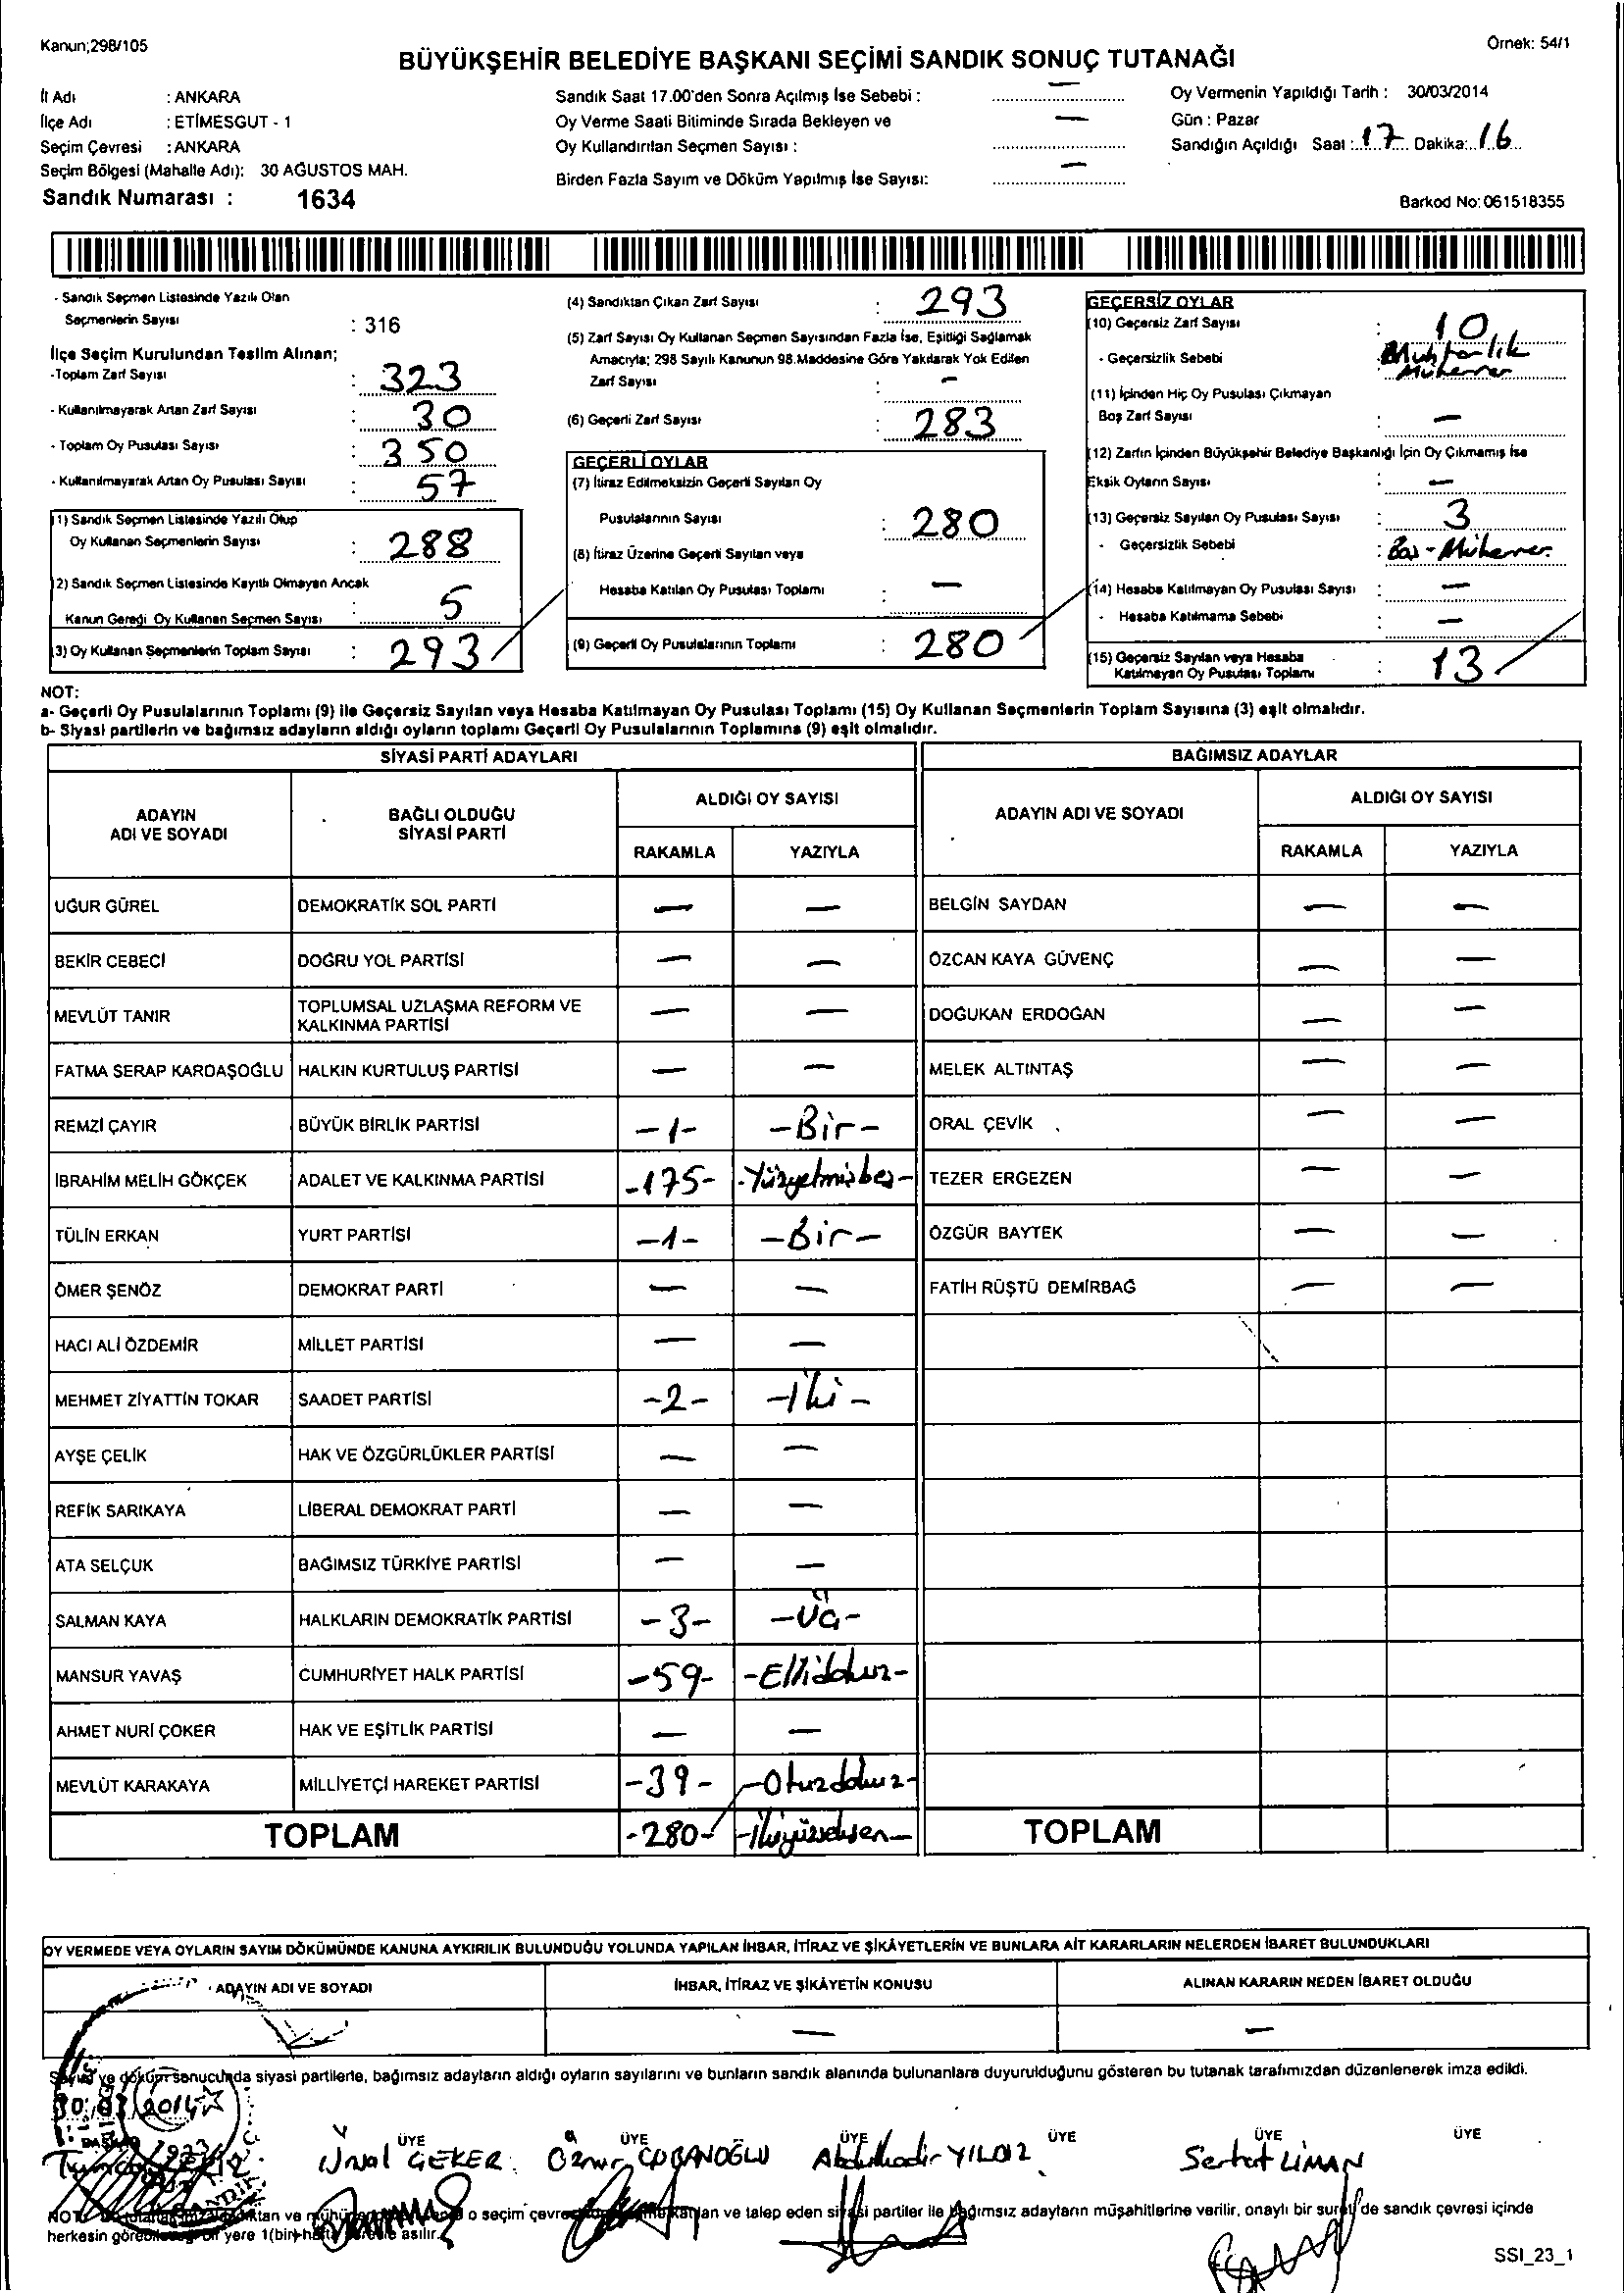 Kanun;298/105
Örnek: 54/1
BÜYÜKŞEHİR BELEDİYE BAŞKANI SEÇİMİ SANDIK SONUÇ TUTANAĞI
İl Adı : ANKARA
İlçe Adı : ETİMESGUT - 1
Seçim Çevresi : ANKARA
Seçim Bölgesi (Mahalle Adı): 30 AĞUSTOS MAH.
Sandık Numarası : 1634
Sandık Saat 17.00'den Sonra Açılmış İse Sebebi : —
Oy Verme Saati Bitiminde Sırada Bekleyen ve —
Oy Kullandırılan Seçmen Sayısı :
Birden Fazla Sayım ve Döküm Yapılmış İse Sayısı: —
Oy Vermenin Yapıldığı Tarih : 30/03/2014
Gün : Pazar
Sandığın Açıldığı Saat : 17 Dakika: 16
Barkod No: 061518355
- Sandık Seçmen Listesinde Yazılı Olan
Seçmenlerin Sayısı : 316
İlçe Seçim Kurulundan Teslim Alınan;
-Toplam Zarf Sayısı : 323
- Kullanılmayarak Artan Zarf Sayısı : 30
- Toplam Oy Pusulası Sayısı : 350
- Kullanılmayarak Artan Oy Pusulası Sayısı : 57
(1) Sandık Seçmen Listesinde Yazılı Olup
Oy Kullanan Seçmenlerin Sayısı : 288
(2) Sandık Seçmen Listesinde Kayıtlı Olmayan Ancak
Kanun Gereği Oy Kullanan Seçmen Sayısı : 5
(3) Oy Kullanan Seçmenlerin Toplam Sayısı : 293
(4) Sandıktan Çıkan Zarf Sayısı : 293
(5) Zarf Sayısı Oy Kullanan Seçmen Sayısından Fazla İse, Eşitliği Sağlamak
Amacıyla; 298 Sayılı Kanunun 98.Maddesine Göre Yakılarak Yok Edilen
Zarf Sayısı : —
(6) Geçerli Zarf Sayısı : 283
GEÇERLİ OYLAR
(7) İtiraz Edilmeksizin Geçerli Sayılan Oy
Pusulalarının Sayısı : 280
(8) İtiraz Üzerine Geçerli Sayılan veya
Hesaba Katılan Oy Pusulası Toplamı : —
(9) Geçerli Oy Pusulalarının Toplamı : 280
GEÇERSİZ OYLAR
(10) Geçersiz Zarf Sayısı : 10
- Geçersizlik Sebebi : Muhtarlık
Mühürler
(11) İçinden Hiç Oy Pusulası Çıkmayan
Boş Zarf Sayısı : —
(12) Zarfın İçinden Büyükşehir Belediye Başkanlığı İçin Oy Çıkmamış İse
Eksik Oyların Sayısı : —
(13) Geçersiz Sayılan Oy Pusulası Sayısı : 3
- Geçersizlik Sebebi :
(14) Hesaba Katılmayan Oy Pusulası Sayısı : —
- Hesaba Katılmama Sebebi : —
(15) Geçersiz Sayılan veya Hesaba
Katılmayan Oy Pusulası Toplamı : 13
NOT:
a- Geçerli Oy Pusulalarının Toplamı (9) ile Geçersiz Sayılan veya Hesaba Katılmayan Oy Pusulası Toplamı (15) Oy Kullanan Seçmenlerin Toplam Sayısına (3) eşit olmalıdır.
b- Siyasi partilerin ve bağımsız adayların aldığı oyların toplamı Geçerli Oy Pusulalarının Toplamına (9) eşit olmalıdır.
SİYASİ PARTİ ADAYLARI
ADAYIN ADI VE SOYADI BAĞLI OLDUĞU SİYASİ PARTİ ALDIĞI OY SAYISI
RAKAMLA YAZIYLA
UĞUR GÜREL DEMOKRATİK SOL PARTİ — —
BEKİR CEBECİ DOĞRU YOL PARTİSİ — —
MEVLÜT TANIR TOPLUMSAL UZLAŞMA REFORM VE KALKINMA PARTİSİ — —
FATMA SERAP KARDAŞOĞLU HALKIN KURTULUŞ PARTİSİ — —
REMZİ ÇAYIR BÜYÜK BİRLİK PARTİSİ -1- -Bir-
İBRAHİM MELİH GÖKÇEK ADALET VE KALKINMA PARTİSİ -175- -Yüzyetmişbeş-
TÜLİN ERKAN YURT PARTİSİ -1- -Bir-
ÖMER ŞENÖZ DEMOKRAT PARTİ — —
HACI ALİ ÖZDEMİR MİLLET PARTİSİ — —
MEHMET ZİYATTİN TOKAR SAADET PARTİSİ -2- -İki-
AYŞE ÇELİK HAK VE ÖZGÜRLÜKLER PARTİSİ — —
REFİK SARIKAYA LİBERAL DEMOKRAT PARTİ — —
ATA SELÇUK BAĞIMSIZ TÜRKİYE PARTİSİ — —
SALMAN KAYA HALKLARIN DEMOKRATİK PARTİSİ -3- -Üç-
MANSUR YAVAŞ CUMHURİYET HALK PARTİSİ -59- -Ellidokuz-
AHMET NURİ ÇOKER HAK VE EŞİTLİK PARTİSİ — —
MEVLÜT KARAKAYA MİLLİYETÇİ HAREKET PARTİSİ -39- -Otuzdokuz-
TOPLAM -280- -İkiyüzseksen-
BAĞIMSIZ ADAYLAR
ADAYIN ADI VE SOYADI ALDIĞI OY SAYISI
RAKAMLA YAZIYLA
BELGİN SAYDAN — —
ÖZCAN KAYA GÜVENÇ — —
DOĞUKAN ERDOĞAN — —
MELEK ALTINTAŞ — —
ORAL ÇEVİK — —
TEZER ERGEZEN — —
ÖZGÜR BAYTEK — —
FATİH RÜŞTÜ DEMİRBAĞ — —
TOPLAM
OY VERMEDE VEYA OYLARIN SAYIM DÖKÜMÜNDE KANUNA AYKIRILIK BULUNDUĞU YOLUNDA YAPILAN İHBAR, İTİRAZ VE ŞİKÂYETLERİN VE BUNLARA AİT KARARLARIN NELERDEN İBARET BULUNDUKLARI
ADAYIN ADI VE SOYADI İHBAR, İTİRAZ VE ŞİKÂYETİN KONUSU ALINAN KARARIN NEDEN İBARET OLDUĞU
— —
Sayım ve döküm sonucunda siyasi partilerle, bağımsız adayların aldığı oyların sayılarını ve bunların sandık alanında bulunanlara duyurulduğunu gösteren bu tutanak tarafımızdan düzenlenerek imza edildi.
30/03/2014
BAŞKAN ÜYE ÜYE ÜYE ÜYE ÜYE ÜYE
Ünal GEKER Öznur ÇOBANOĞLU Abdulkadir YILDIZ Serhat LİMAN
NOT: o seçim çevresinde katılan ve talep eden siyasi partiler ile bağımsız adayların müşahitlerine verilir, onaylı bir sureti de sandık çevresi içinde
herkesin görebileceği bir yere 1(bir) hafta süreyle asılır.
SSI_23_1